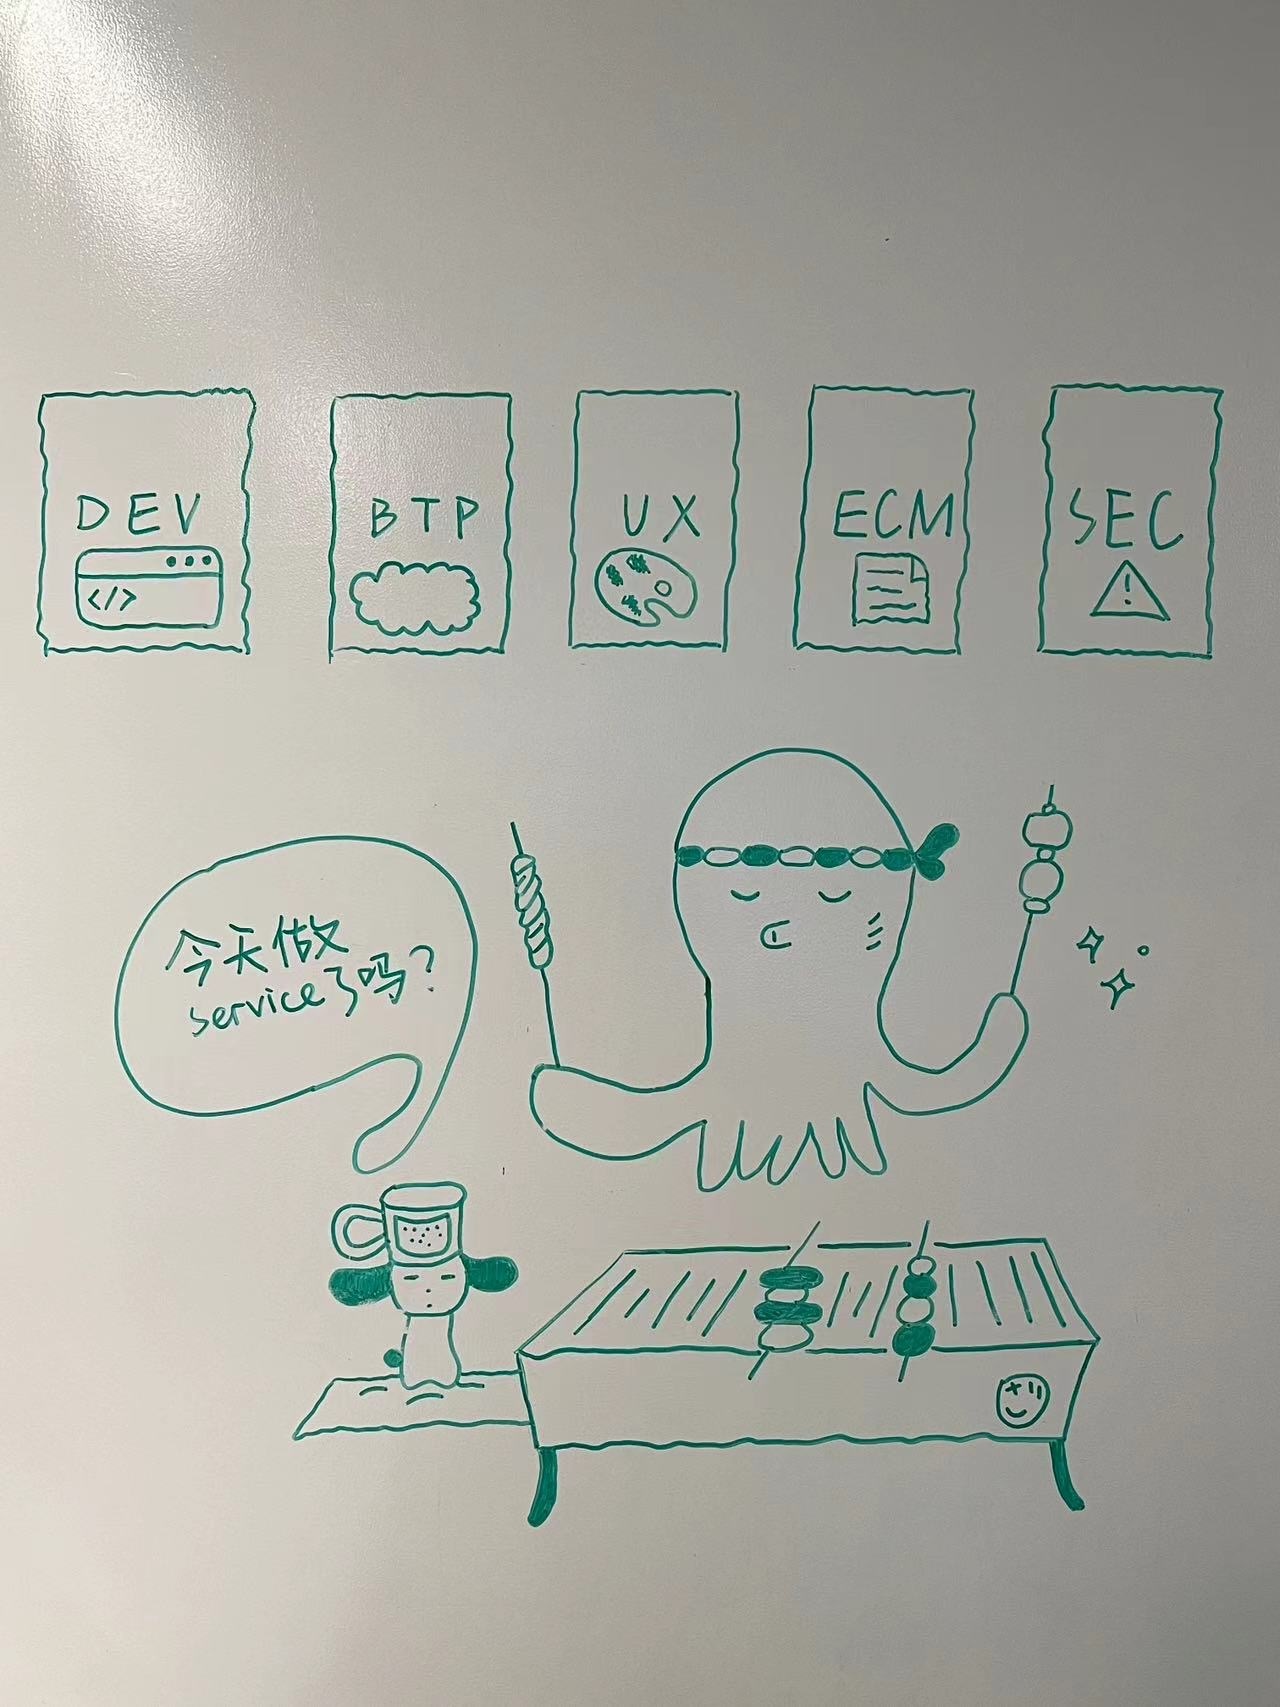 DEV
</>
BTP
UX
ECM
SEC
!
今天做
service了吗?